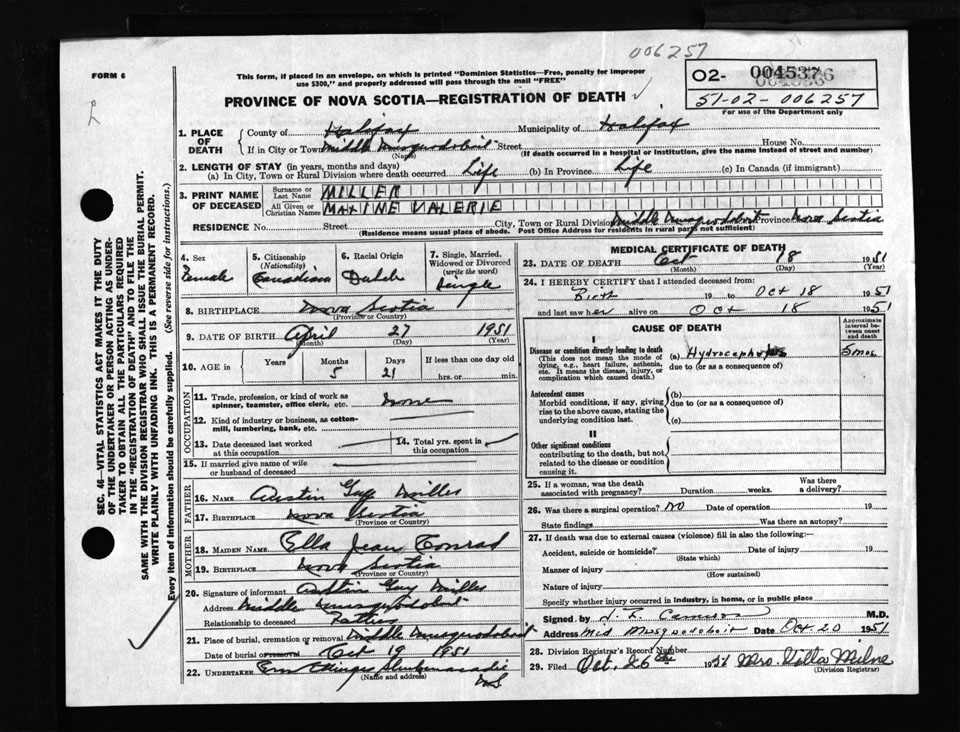 006257
FORM 6
This form, if placed in an envelope, on which is printed "Dominion Statistics—Free, penalty for improper
use $300," and properly addressed will pass through the mail "FREE"
02- 004537
51-02-006257
For use of the Department only
PROVINCE OF NOVA SCOTIA—REGISTRATION OF DEATH
SEC. 46—VITAL STATISTICS ACT MAKES IT THE DUTY
OF THE UNDERTAKER OR PERSON ACTING AS UNDER-
TAKER TO OBTAIN ALL THE PARTICULARS REQUIRED
IN THE "REGISTRATION OF DEATH" AND TO FILE THE
SAME WITH THE DIVISION REGISTRAR WHO SHALL ISSUE THE BURIAL PERMIT.
WRITE PLAINLY WITH UNFADING INK. THIS IS A PERMANENT RECORD.
Every item of information should be carefully supplied. (See reverse side for instructions.)
1. PLACE OF DEATH County of Halifax Municipality of Halifax
If in City or Town Middle Musquodoboit Street House No.
(Name) (If death occurred in a hospital or institution, give the name instead of street and number)
2. LENGTH OF STAY (in years, months and days)
(a) In City, Town or Rural Division where death occurred Life (b) In Province Life (c) In Canada (if immigrant)
3. PRINT NAME OF DECEASED Surname or Last Name MILLER
All Given or Christian Names MAXINE VALERIE
RESIDENCE No. Street City, Town or Rural Division Middle Musquodoboit Province Nova Scotia
(Residence means usual place of abode. Post Office Address for residents in rural parts not sufficient)
4. Sex Female
5. Citizenship (Nationality) Canadian
6. Racial Origin Dutch
7. Single, Married, Widowed or Divorced (write the word) Single
8. BIRTHPLACE Nova Scotia
(Province or Country)
9. DATE OF BIRTH April 27 1951
(Month) (Day) (Year)
10. AGE in Years Months 5 Days 21 If less than one day old hrs. or min.
OCCUPATION
11. Trade, profession, or kind of work as spinner, teamster, office clerk, etc. None
12. Kind of industry or business, as cotton-mill, lumbering, bank, etc.
13. Date deceased last worked at this occupation
14. Total yrs. spent in this occupation
15. If married give name of wife or husband of deceased
FATHER
16. NAME Austin Guy Miller
17. BIRTHPLACE Nova Scotia
(Province or Country)
MOTHER
18. MAIDEN NAME Ella Jean Conrad
19. BIRTHPLACE Nova Scotia
(Province or Country)
20. Signature of informant Austin Guy Miller
Address Middle Musquodoboit
Relationship to deceased Father
21. Place of burial, cremation or removal Middle Musquodoboit
Date of burial or removal Oct 19 1951
22. UNDERTAKER Shubenacadie
(Name and address) N.S.
MEDICAL CERTIFICATE OF DEATH
23. DATE OF DEATH Oct 18 1951
(Month) (Day) (Year)
24. I HEREBY CERTIFY that I attended deceased from:
Birth 19 to Oct 18 1951
and last saw her alive on Oct 18 1951
CAUSE OF DEATH
Approximate interval between onset and death
I
Disease or condition directly leading to death (a) Hydrocephalus 5 mos.
(This does not mean the mode of dying, e.g., heart failure, asthenia, etc. It means the disease, injury, or complication which caused death.) due to (or as a consequence of)
Antecedent causes (b)
Morbid conditions, if any, giving rise to the above cause, stating the underlying condition last. due to (or as a consequence of)
(c)
II
Other significant conditions
contributing to the death, but not related to the disease or condition causing it.
25. If a woman, was the death associated with pregnancy? Duration weeks. Was there a delivery?
26. Was there a surgical operation? NO Date of operation 19
State findings Was there an autopsy?
27. If death was due to external causes (violence) fill in also the following:—
Accident, suicide or homicide? Date of injury 19
(State which)
Manner of injury
(How sustained)
Nature of injury
Specify whether injury occurred in industry, in home, or in public place
Signed by M.D.
Address Mid Musquodoboit Date Oct 20 1951
28. Division Registrar's Record Number
29. Filed Oct. 26th 1951 Mrs. Milne
(Division Registrar)